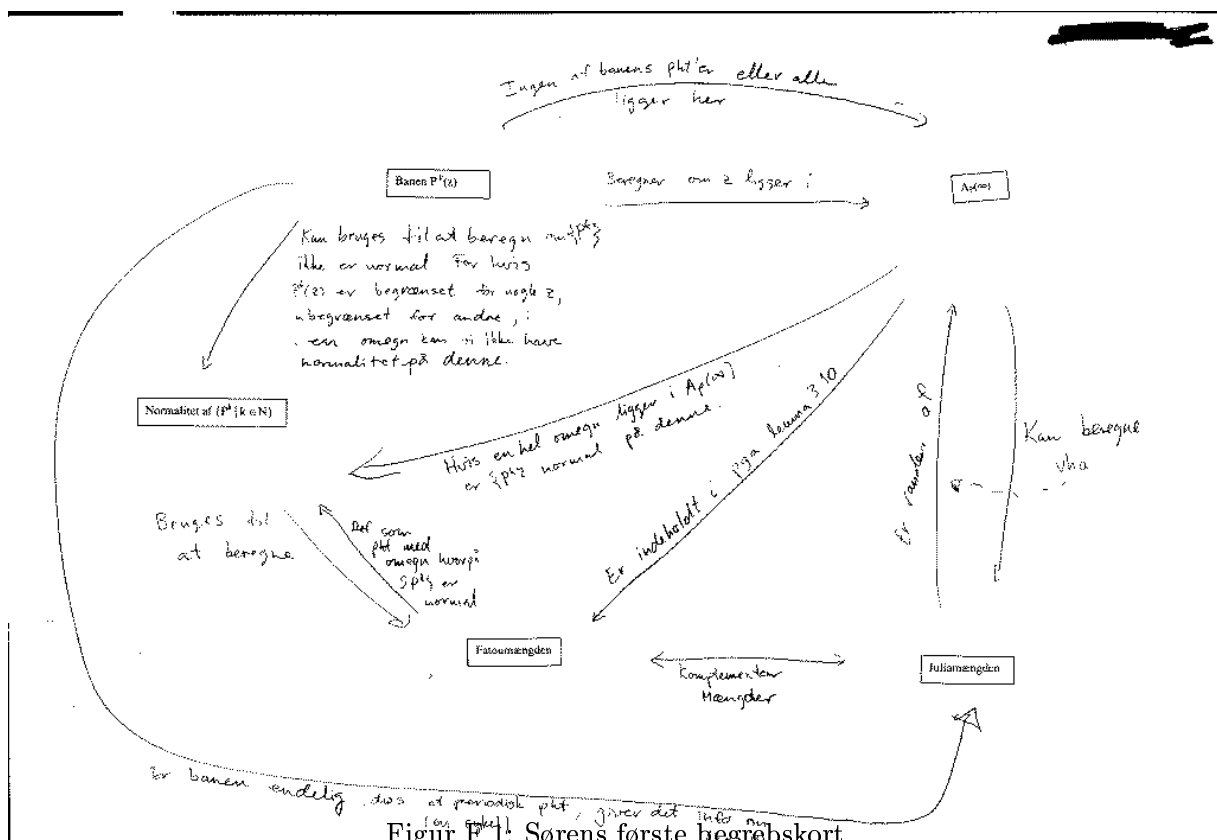 Ingen af banens pkt'er eller alle
ligger her
Banen Pᵏ(z)
Beregner om z ligger i
A_P(∞)
Kan bruges til at beregn om {Pᵏ}
ikke er normal For hvis
Pᵏ(z) er begrænset for nogle z,
ubegrænset for andre, i
en omegn kan vi ikke have
normalitet på denne.
Normalitet af {Pᵏ | k ∈ N}
Hvis en hel omegn ligger i A_P(∞)
er {Pᵏ} normal på denne.
Er indeholdt i pga lemma 3.10
Er randen af
Kan beregne
vha
Bruges til
at beregne
Def som
pkt med
omegn hvorpå
{Pᵏ} er
normal
Fatoumængden
Komplementær
Mængder
Juliamængden
Er banen endelig, dvs et periodisk pkt, giver det info om
(en cykel)
Figur F.1: Sørens første begrebskort